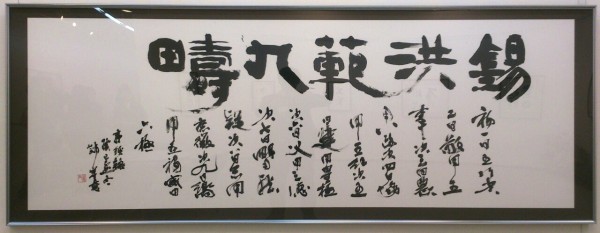 錫洪範九疇
初一曰五行次
二曰敬用五
事次三曰農
用八政次四曰協
用五紀次五
曰建用皇極
次六曰乂用三德
次七曰明用稽
疑次八曰念用
庶徵次九曰嚮
用五福威用
六極